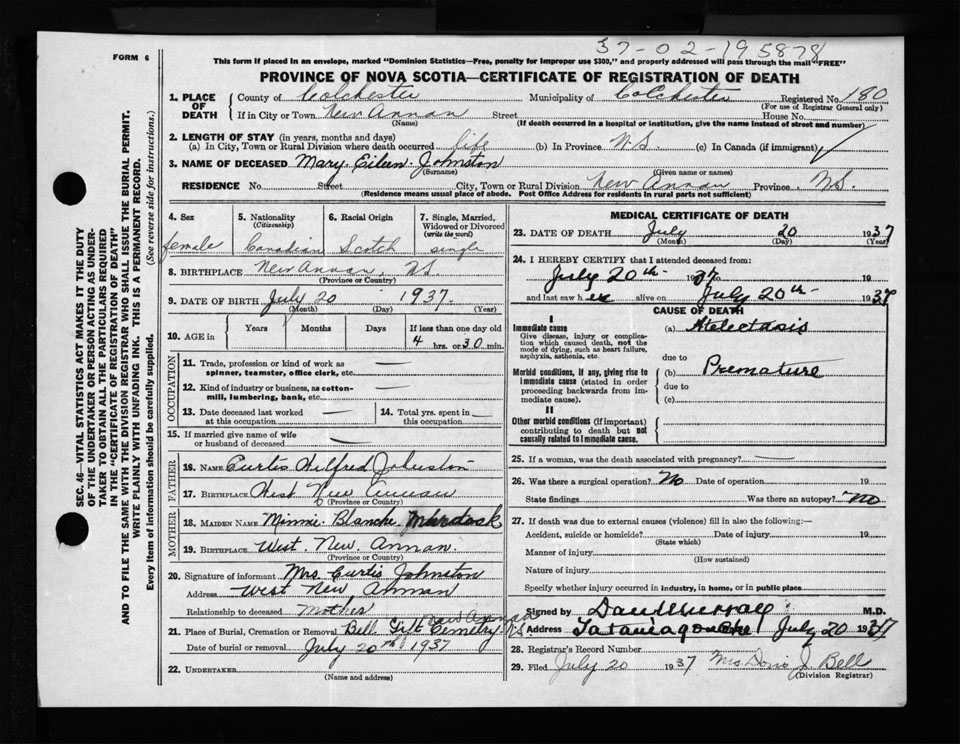 37-02-195878
FORM 6
This form if placed in an envelope, marked "Dominion Statistics—Free, penalty for improper use $300," and properly addressed will pass through the mail "FREE"
PROVINCE OF NOVA SCOTIA—CERTIFICATE OF REGISTRATION OF DEATH
1. PLACE OF DEATH County of Colchester Municipality of Colchester Registered No. 180
(For use of Registrar General only)
If in City or Town New Annan Street House No.
(Name) (If death occurred in a hospital or institution, give the name instead of street and number)
2. LENGTH OF STAY (in years, months and days)
(a) In City, Town or Rural Division where death occurred life (b) In Province N.S. (c) In Canada (if immigrant)
3. NAME OF DECEASED Mary Eileen Johnston
(Surname) (Given name or names)
RESIDENCE No. Street City, Town or Rural Division New Annan Province N.S.
(Residence means usual place of abode. Post Office Address for residents in rural parts not sufficient)
4. Sex female
5. Nationality (Citizenship) Canadian
6. Racial Origin Scotch
7. Single, Married, Widowed or Divorced (write the word) single
8. BIRTHPLACE New Annan, N.S.
(Province or Country)
9. DATE OF BIRTH July 20 1937
(Month) (Day) (Year)
10. AGE in Years Months Days If less than one day old
4 hrs. or 30 min.
OCCUPATION
11. Trade, profession or kind of work as spinner, teamster, office clerk, etc. —
12. Kind of industry or business, as cotton-mill, lumbering, bank, etc. —
13. Date deceased last worked at this occupation —
14. Total yrs. spent in this occupation —
15. If married give name of wife or husband of deceased —
FATHER
16. NAME Curtis Wilfred Johnston
17. BIRTHPLACE West New Annan
(Province or Country)
MOTHER
18. MAIDEN NAME Minnie Blanche Murdock
19. BIRTHPLACE West New Annan.
(Province or Country)
20. Signature of informant Mrs. Curtis Johnston
Address West New Annan
Relationship to deceased Mother
21. Place of Burial, Cremation or Removal Bell Cemetery New Annan N.S.
Date of burial or removal July 20th 1937
22. UNDERTAKER
(Name and address)
MEDICAL CERTIFICATE OF DEATH
23. DATE OF DEATH July 20 1937
(Month) (Day) (Year)
24. I HEREBY CERTIFY that I attended deceased from:
July 20th 1937 19
and last saw her alive on July 20th 1937
CAUSE OF DEATH
I
Immediate cause (a) Atelectasis
Give disease, injury or complication which caused death, not the mode of dying, such as heart failure, asphyxia, asthenia, etc.
due to
Morbid conditions, if any, giving rise to immediate cause (stated in order proceeding backwards from immediate cause).
(b) Premature
due to
(c)
II
Other morbid conditions (if important) contributing to death but not causally related to immediate cause.
25. If a woman, was the death associated with pregnancy? —
26. Was there a surgical operation? No Date of operation 19
State findings Was there an autopsy? No
27. If death was due to external causes (violence) fill in also the following:—
Accident, suicide or homicide? Date of injury 19
(State which)
Manner of injury
(How sustained)
Nature of injury
Specify whether injury occurred in industry, in home, or in public place
Signed by Dan Murray M.D.
Address Tatamagouche July 20 1937
28. Registrar's Record Number
29. Filed July 20 1937 Mrs Doris J. Bell
(Division Registrar)
SEC. 46—VITAL STATISTICS ACT MAKES IT THE DUTY
OF THE UNDERTAKER OR PERSON ACTING AS UNDER-
TAKER TO OBTAIN ALL THE PARTICULARS REQUIRED
IN THE "CERTIFICATE OF REGISTRATION OF DEATH"
AND TO FILE THE SAME WITH THE DIVISION REGISTRAR WHO SHALL ISSUE THE BURIAL PERMIT.
WRITE PLAINLY WITH UNFADING INK. THIS IS A PERMANENT RECORD.
Every item of information should be carefully supplied. (See reverse side for instructions.)